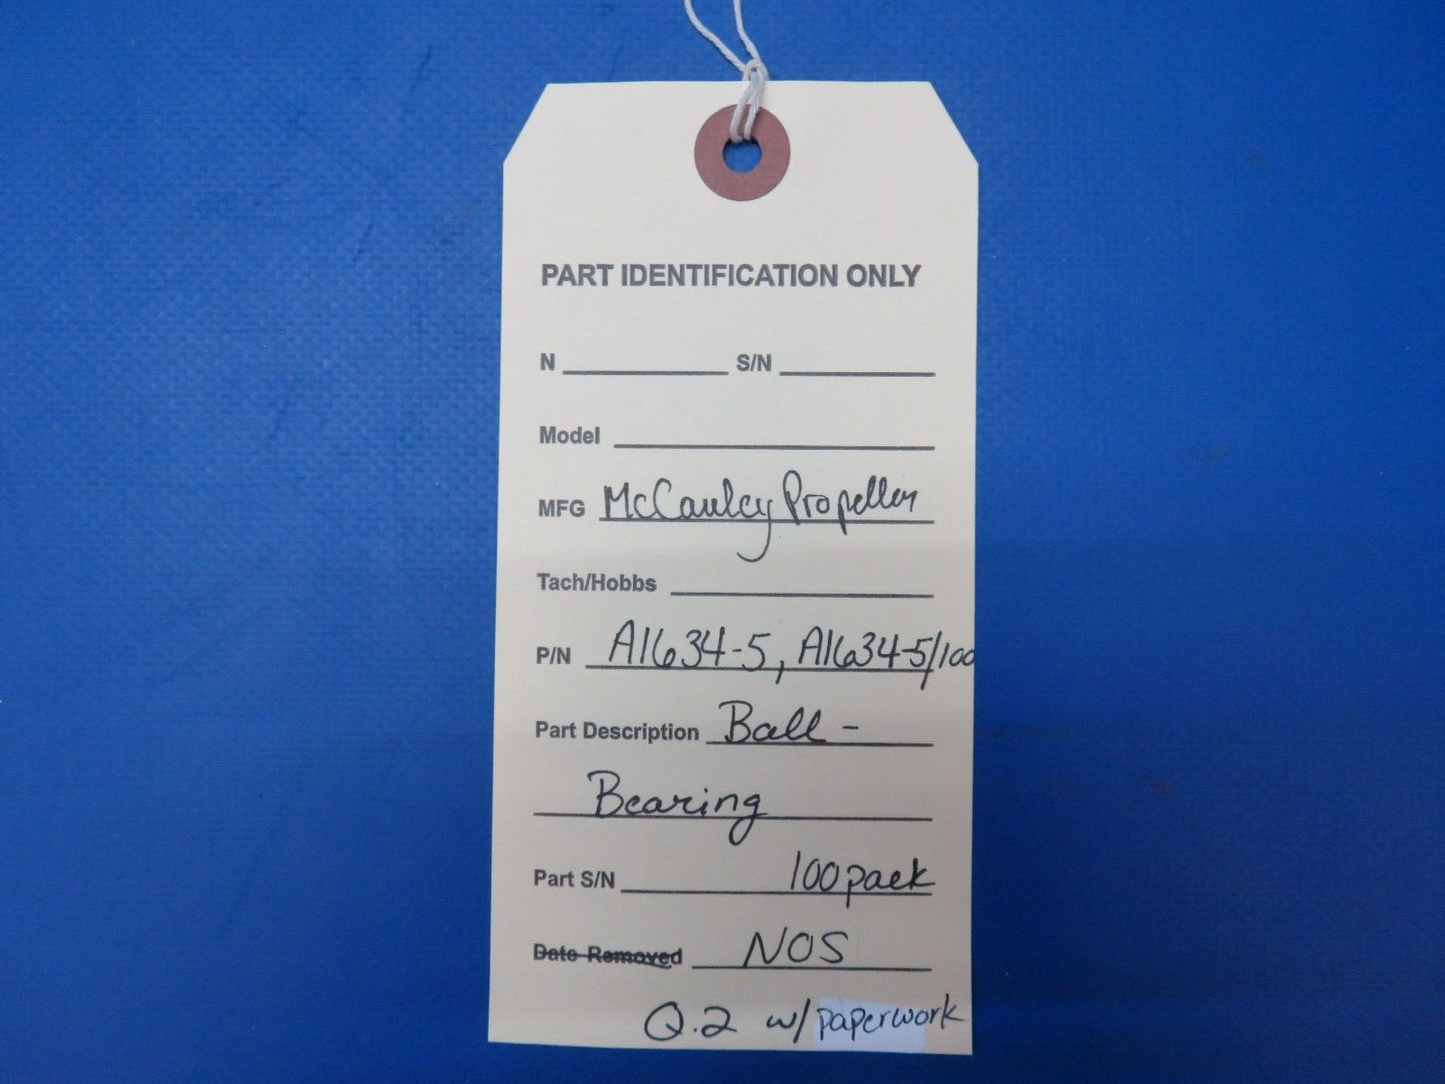 PART IDENTIFICATION ONLY
N S/N
Model
MFG McCauley Propeller
Tach/Hobbs
P/N A1634-5, A1634-5/100
Part Description Ball -
Bearing
Part S/N 100 pack
Date Removed NOS
Q.2 w/ paperwork